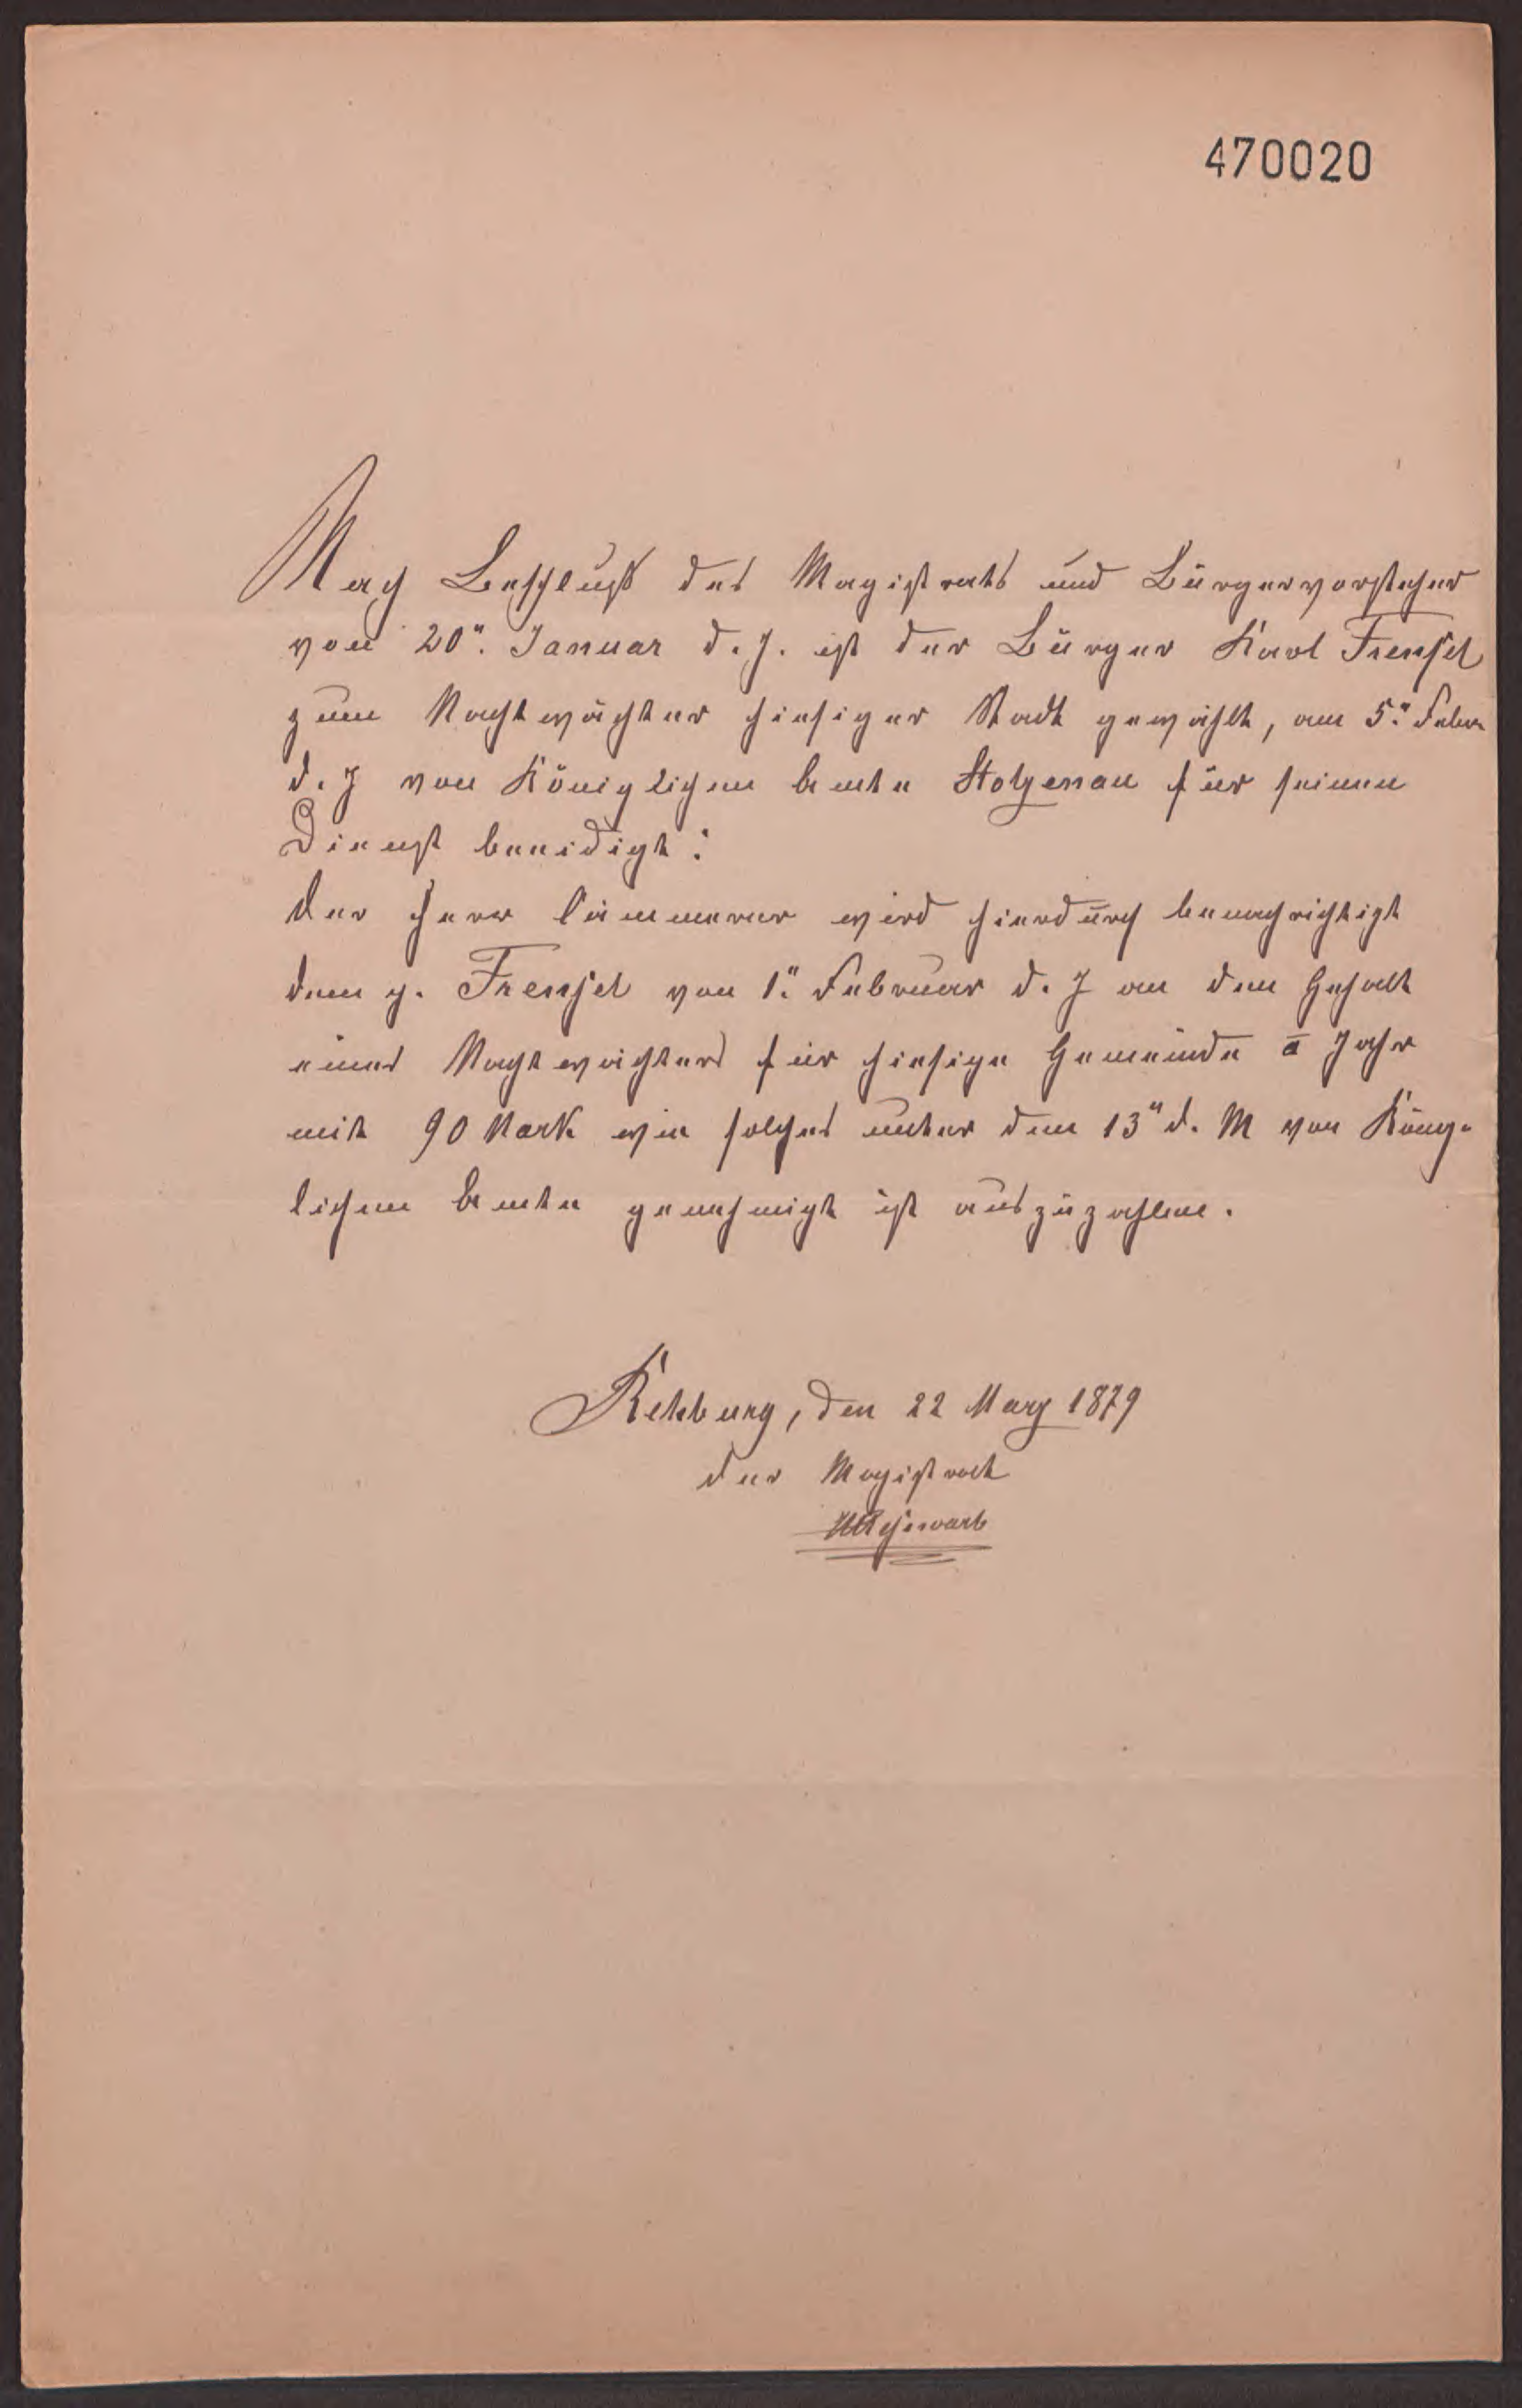 470020
Nach Beschluß des Magistrats und Bürgervorsteher
von 20ⁿ. Januar d. J. ist der Bürger Karl Frensel
zum Nachtwächter hiesiger Stadt gewählt, am 5ⁿ. Febr.
d. J von Königlichem Amte Stolzenau für seinen
Dienst beeidigt:
Der Herr Cämmerer wird hierdurch benachrichtigt
dem p. Frensel von 1ⁿ. Februar d. J an den Gehalt
eines Nachtwächters für hiesige Gemeinde a Jahr
mit 90 Mark wie solches unter dem 13ⁿ d. M von König-
lichem Amte genehmigt ist auszuzahlen.
Rehburg, den 22 Marz 1879
Der Magistrat